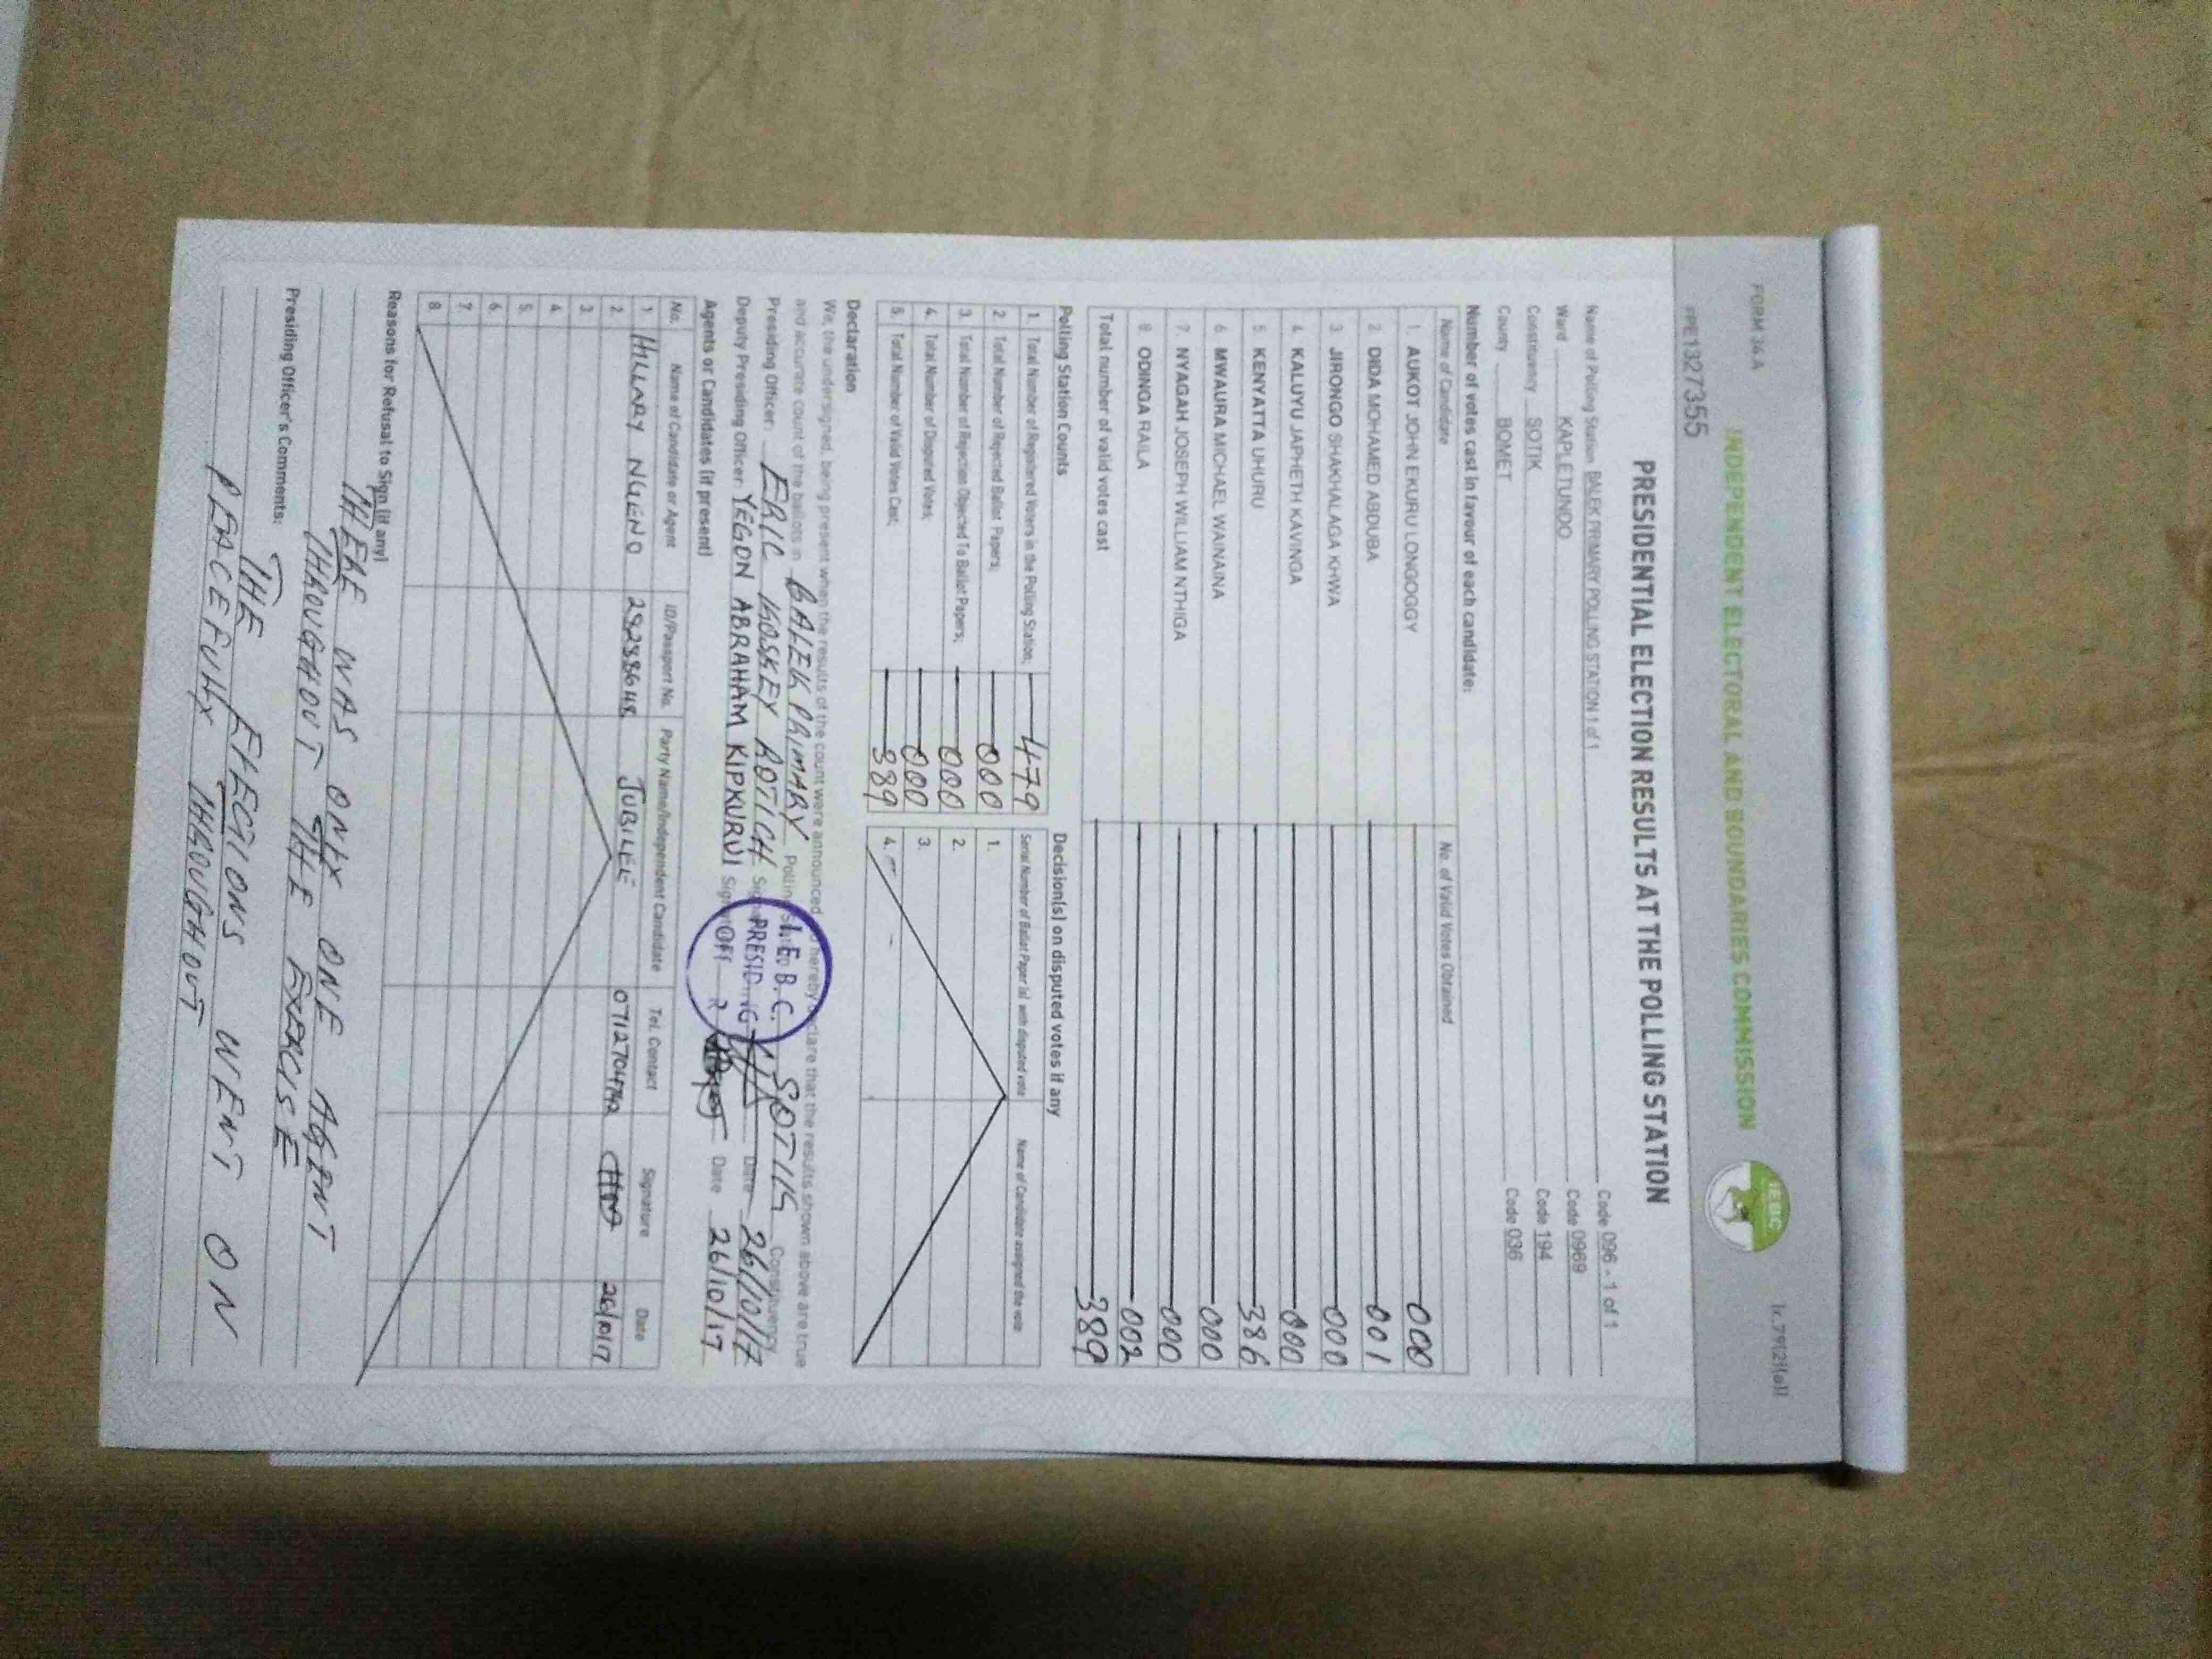 FORM 36 A
INDEPENDENT ELECTORAL AND BOUNDARIES COMMISSION
IEBC
PE1327355
PRESIDENTIAL ELECTION RESULTS AT THE POLLING STATION
Name of Polling Station BALEK PRIMARY POLLING STATION 1 of 1 Code 096 - 1 of 1
Ward KAPLETUNDO Code 0969
Constituency SOTIK Code 194
County BOMET Code 036
Number of votes cast in favour of each candidate:
Name of Candidate No. of Valid Votes Obtained
1. AUKOT JOHN EKURU LONGOGGY 000
2. DIDA MOHAMED ABDUBA 001
3. JIRONGO SHAKHALAGA KHWA 000
4. KALUYU JAPHETH KAVINGA 000
5. KENYATTA UHURU 386
6. MWAURA MICHAEL WAINAINA 000
7. NYAGAH JOSEPH WILLIAM NTHIGA 000
8. ODINGA RAILA 002
Total number of valid votes cast 389
Polling Station Counts
1. Total Number of Registered Voters in the Polling Station; 479
2. Total Number of Rejected Ballot Papers; 000
3. Total Number of Rejection Objected To Ballot Papers; 000
4. Total Number of Disputed Votes; 000
5. Total Number of Valid Votes Cast; 389
Decision(s) on disputed votes if any
Serial Number of Ballot Paper (s) with disputed vote Name of Candidate assigned the vote
1.
2.
3.
4.
Declaration
We, the undersigned, being present when the results of the count were announced hereby declare that the results shown above are true
and accurate count of the ballots in BALEK PRIMARY Polling SOTIK Constituency
Presiding Officer: ERIC KOSKEY ROTICH Date 26/10/17
Deputy Presiding Officer: YEGON ABRAHAM KIPKURUI Date 26/10/17
I.E.B.C.
PRESIDING
Agents or Candidates (if present)
No. Name of Candidate or Agent ID/Passport No. Party Name/Independent Candidate Tel. Contact Signature Date
1 HILLARY NGENO 29238648 JUBILEE 0712704742 26/10/17
2.
3.
4.
5.
6.
7.
8.
Reasons for Refusal to Sign (if any)
THERE WAS ONLY ONE AGENT
THROUGHOUT THE EXERCISE
Presiding Officer's Comments:
THE ELECTIONS WENT ON
PEACEFULLY THROUGHOUT